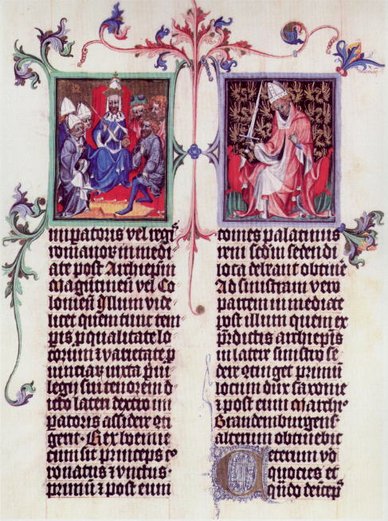 impatoris vel regis
romanorum immedi
ate post Archiepm
maguntinen vel Co
lonien Illum vide
licet quem tunc tem
pis p qualitate lo
corum et varietate p
uinciar iuxta priui
legij sui tenorem di
cto lateri dextro im
patoris assidere con
tigerit Rex boemie
cum sit princeps co
ronatus et vnctus
primum et post eum
comes palatinus
reni secundum sedendi
loca debeant obtinere
Ad sinistram vero
partem immediate
post illum quem ex
pdictis archiepis
in latere sinistro se
dere contiget primum
locum dux saxonie
et post eum marchio
Brandemburgens
alterum obtinebit
Ceterum
quocies et
quando deinceps